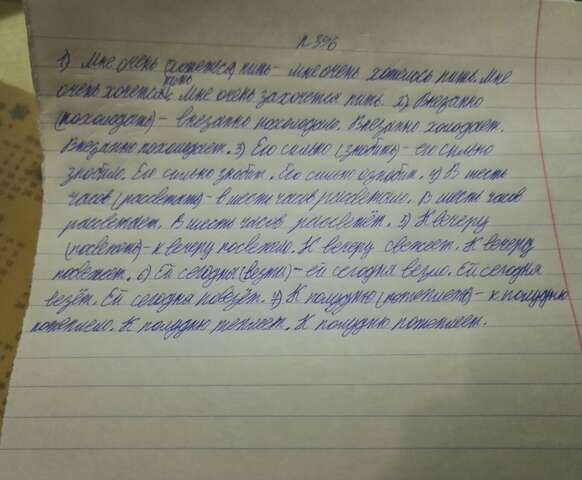 №396
1) Мне очень (хотеться) пить - мне очень хотелось пить. Мне
очень хочется пить. Мне очень захочется пить. 2) Внезапно
(похолодать) - внезапно похолодало. Внезапно холодает.
Внезапно похолодает. 3) Его сильно (знобить) - его сильно
знобило. Его сильно знобит. Его сильно ознобит. 4) В шесть
часов (рассветать) - в шесть часов рассветало. В шесть часов
рассветает. В шесть часов рассветёт. 5) К вечеру
(посветать) - к вечеру посветлело. К вечеру светлеет. К вечеру
посветлеет. 6) Ей сегодня (везти) - ей сегодня везло. Ей сегодня
везёт. Ей сегодня повезёт. 7) К полудню (потеплеть) - к полудню
потеплело. К полудню теплеет. К полудню потеплеет.